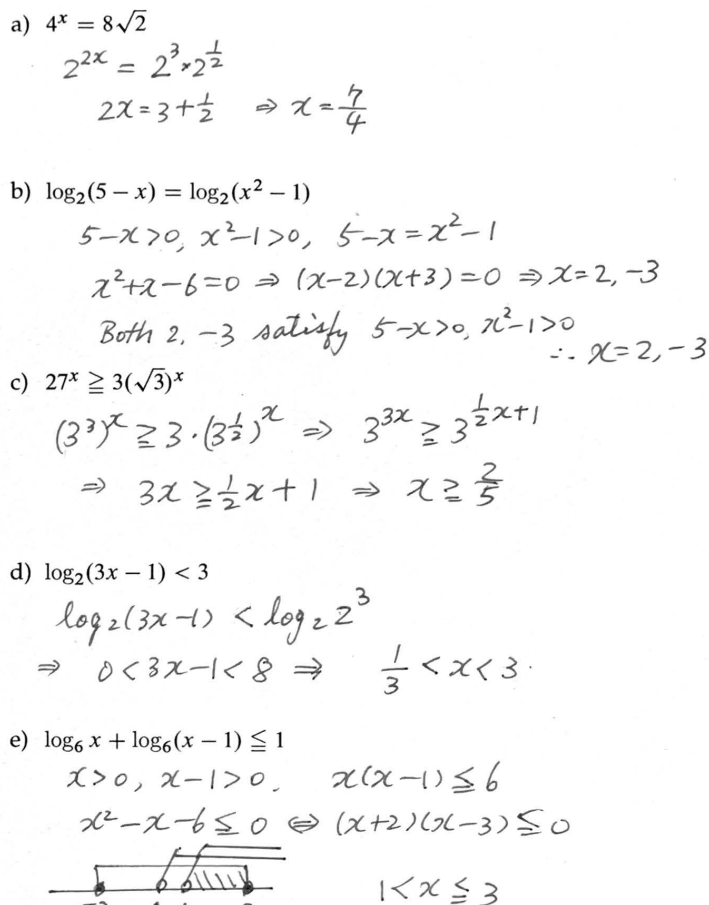 a) 4^x = 8√2
2^{2x} = 2^3 × 2^{1/2}
2x = 3 + 1/2 ⇒ x = 7/4
b) log₂(5 − x) = log₂(x² − 1)
5−x>0, x²−1>0, 5−x = x²−1
x²+x−6=0 ⇒ (x−2)(x+3)=0 ⇒ x=2, −3
Both 2, −3 satisfy 5−x>0, x²−1>0
∴ x=2, −3
c) 27^x ≧ 3(√3)^x
(3³)^x ≧ 3·(3^{1/2})^x ⇒ 3^{3x} ≧ 3^{1/2x+1}
⇒ 3x ≧ 1/2x + 1 ⇒ x ≧ 2/5
d) log₂(3x − 1) < 3
log₂(3x−1) < log₂2³
⇒ 0<3x−1<8 ⇒ 1/3 < x < 3.
e) log₆ x + log₆(x − 1) ≦ 1
x>0, x−1>0. x(x−1) ≦ 6
x²−x−6 ≦ 0 ⇔ (x+2)(x−3) ≦ 0
1<x≦3